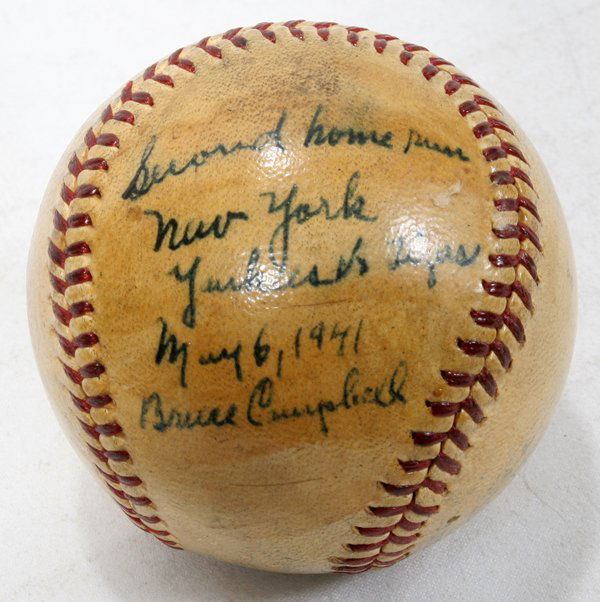 Second home run
New York
Yankees vs Tigers
May 6, 1941
Bruce Campbell